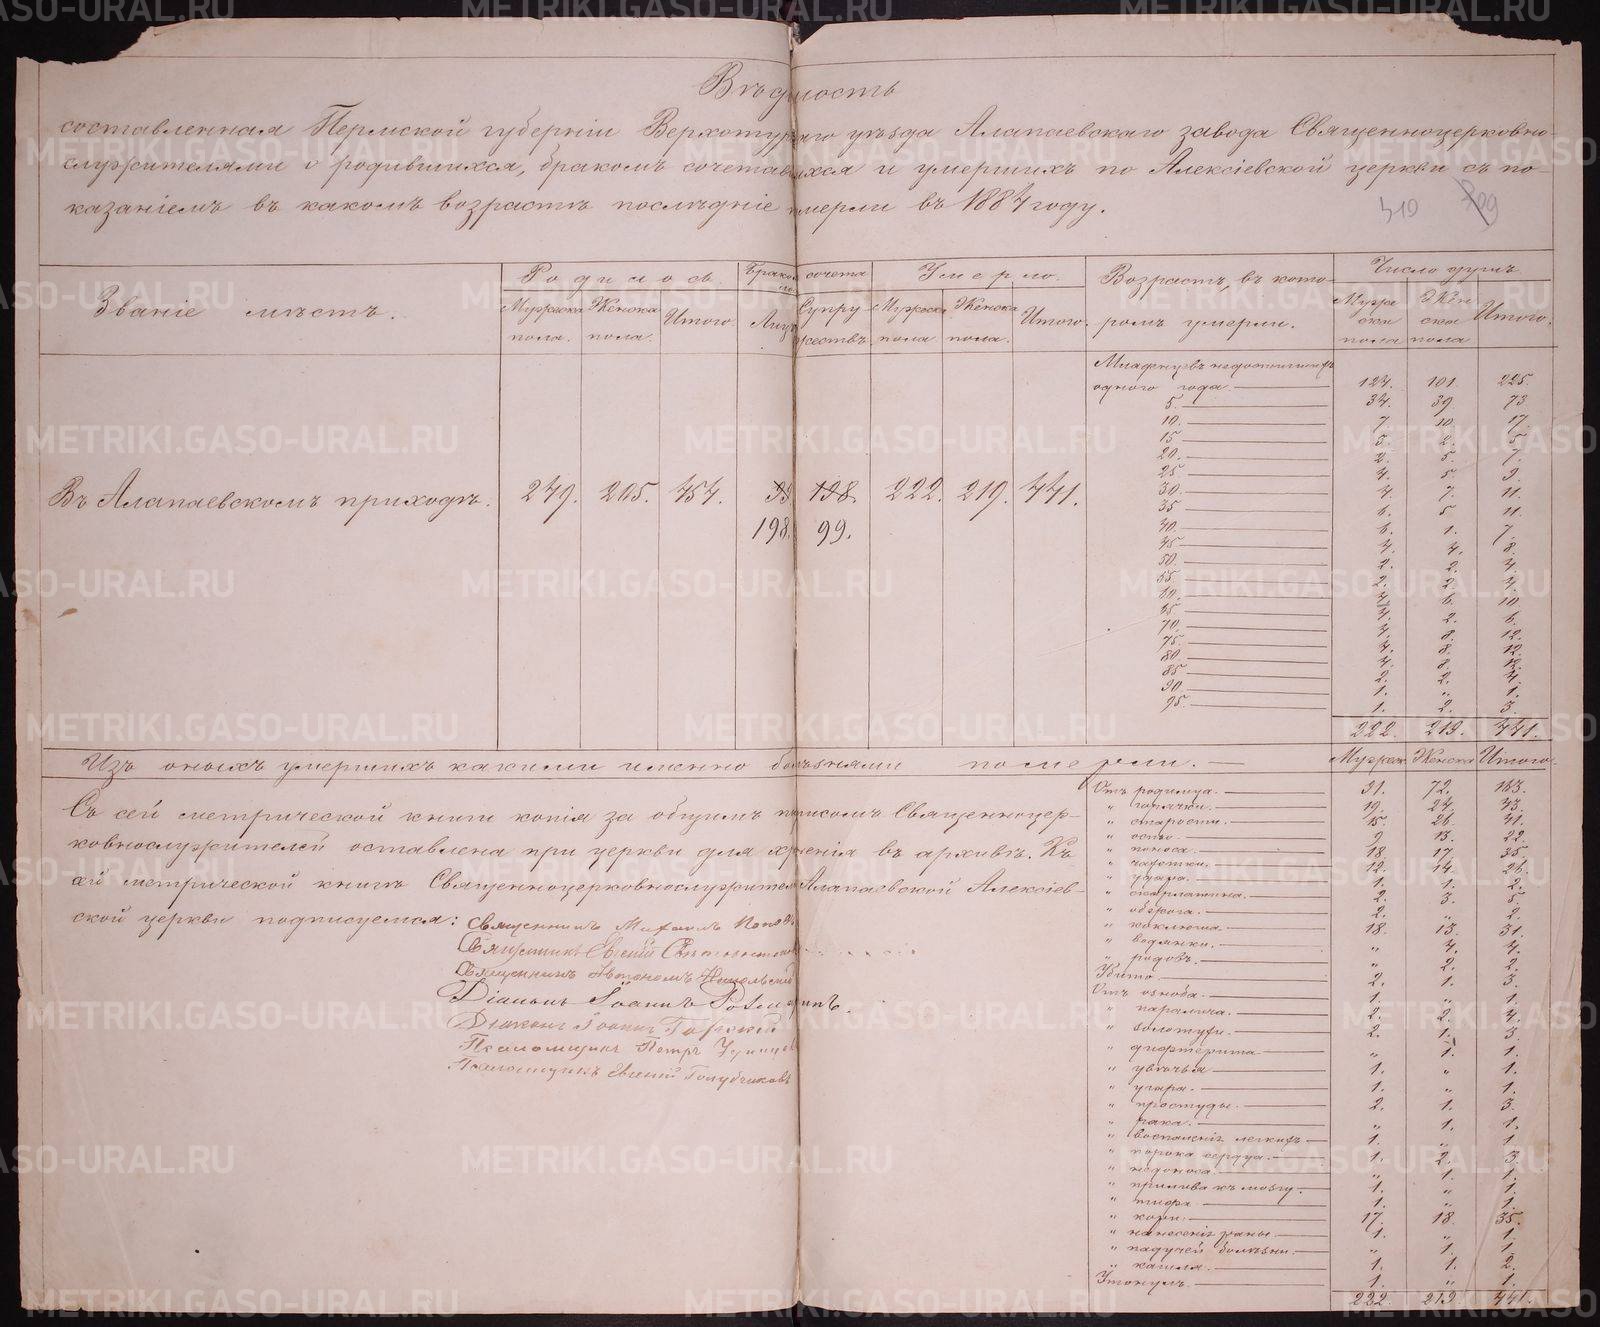 Вѣдомость
составленная Пермской губерніи Верхотурскаго уѣзда Алапаевскаго завода Священноцерковно-
служителями о родившихся, бракомъ сочетавшихся и умершихъ по Алексіевской церкви съ по-
казаніемъ въ какомъ возрастѣ послѣдніе умерли въ 1887 году.
Званіе мѣстъ. Родилось. Бракомъ сочета Умерло. Возрастъ, въ кото- Число душъ
Мужеска пола. Женска пола. Итого. Лицъ Супружествъ Мужеска пола Женска пола. Итого. ромъ умерли. Мужески пола Женски пола Итого.
Младенцевъ недожившихъ
одного года 124. 101. 225.
5. 34. 39. 73.
10. 7. 10. 17.
15 3. 2. 5.
20. 2. 5. 7.
25 4. 5. 9.
30. 4. 7. 11.
35 6. 5 11.
40. 6. 1. 7.
45 4. 4. 8.
50. 2. 2. 4.
55. 2. 2. 4.
60. 4. 6. 10
65 4. 2. 6.
70. 4. 8. 12.
75. 4. 8. 12.
80. 4. 8. 12.
85 2. 2. 4.
90. 1. „ 1.
95. 1. 2. 3.
222. 219. 441.
Въ Алапаевскомъ приходѣ. 249. 205. 454. 99 198. 222. 219. 441.
198. 99.
Изъ оныхъ умершихъ какими именно болѣзнями померли. Мужеск Женска Итого.
Съ сей метрической книги копія за общимъ подписомъ Священноцер-
ковнослужителей оставлена при церкви для храненія въ архивѣ. Къ
сей метрической книгѣ Священноцерковнослужители Алапаевской Алексіев-
ской церкви подписуемся: Священникъ Михаилъ Поповъ
Священникъ Евгеній
Священникъ
Діаконъ Іоаннъ
Діаконъ Іоаннъ Горскій
Псаломщикъ Петръ
Псаломщикъ Евгеній Голубчиковъ
Отъ родимца. 91. 72. 163.
„ горячки. 19. 24. 43.
„ старости. 15. 26. 41.
„ оспы. 9 13. 22.
„ поноса. 18. 17 35.
„ чахотки. 12. 14. 26.
„ удара. 1. 1. 2.
„ скарлатина. 2. 3. 5.
„ обжога. 2. „ 2.
„ коклюша. 18. 13. 31.
„ водянки. „ 4. 4.
„ родовъ. „ 2. 2.
Убито 2. 1. 3.
Отъ озноба. 1. „ 1.
„ паралича. 2. 2. 4.
„ золотухи. 2. 1. 3.
„ дифтерита „ 1. 1.
„ увѣчья 1. „ 1.
„ угара. 1. „ 1.
„ простуды. 2. 1. 3.
„ рака. „ 1. 1.
„ воспаленія легкихъ 1. „ 1
„ порока сердца. 1. 2. 3.
„ недоноса. „ 1. 1.
„ прилива къ мозгу. 1. „ 1.
„ тифа 1. „ 1.
„ кори. 17. 18. 35.
„ нанесенія раны. 1. „ 1.
„ падучей болѣзни. „ 1. 1
„ кашля. 1. 1. 2.
Утонулъ. 1. „ 1.
222. 219. 441.
METRIKI.GASO-URAL.RU